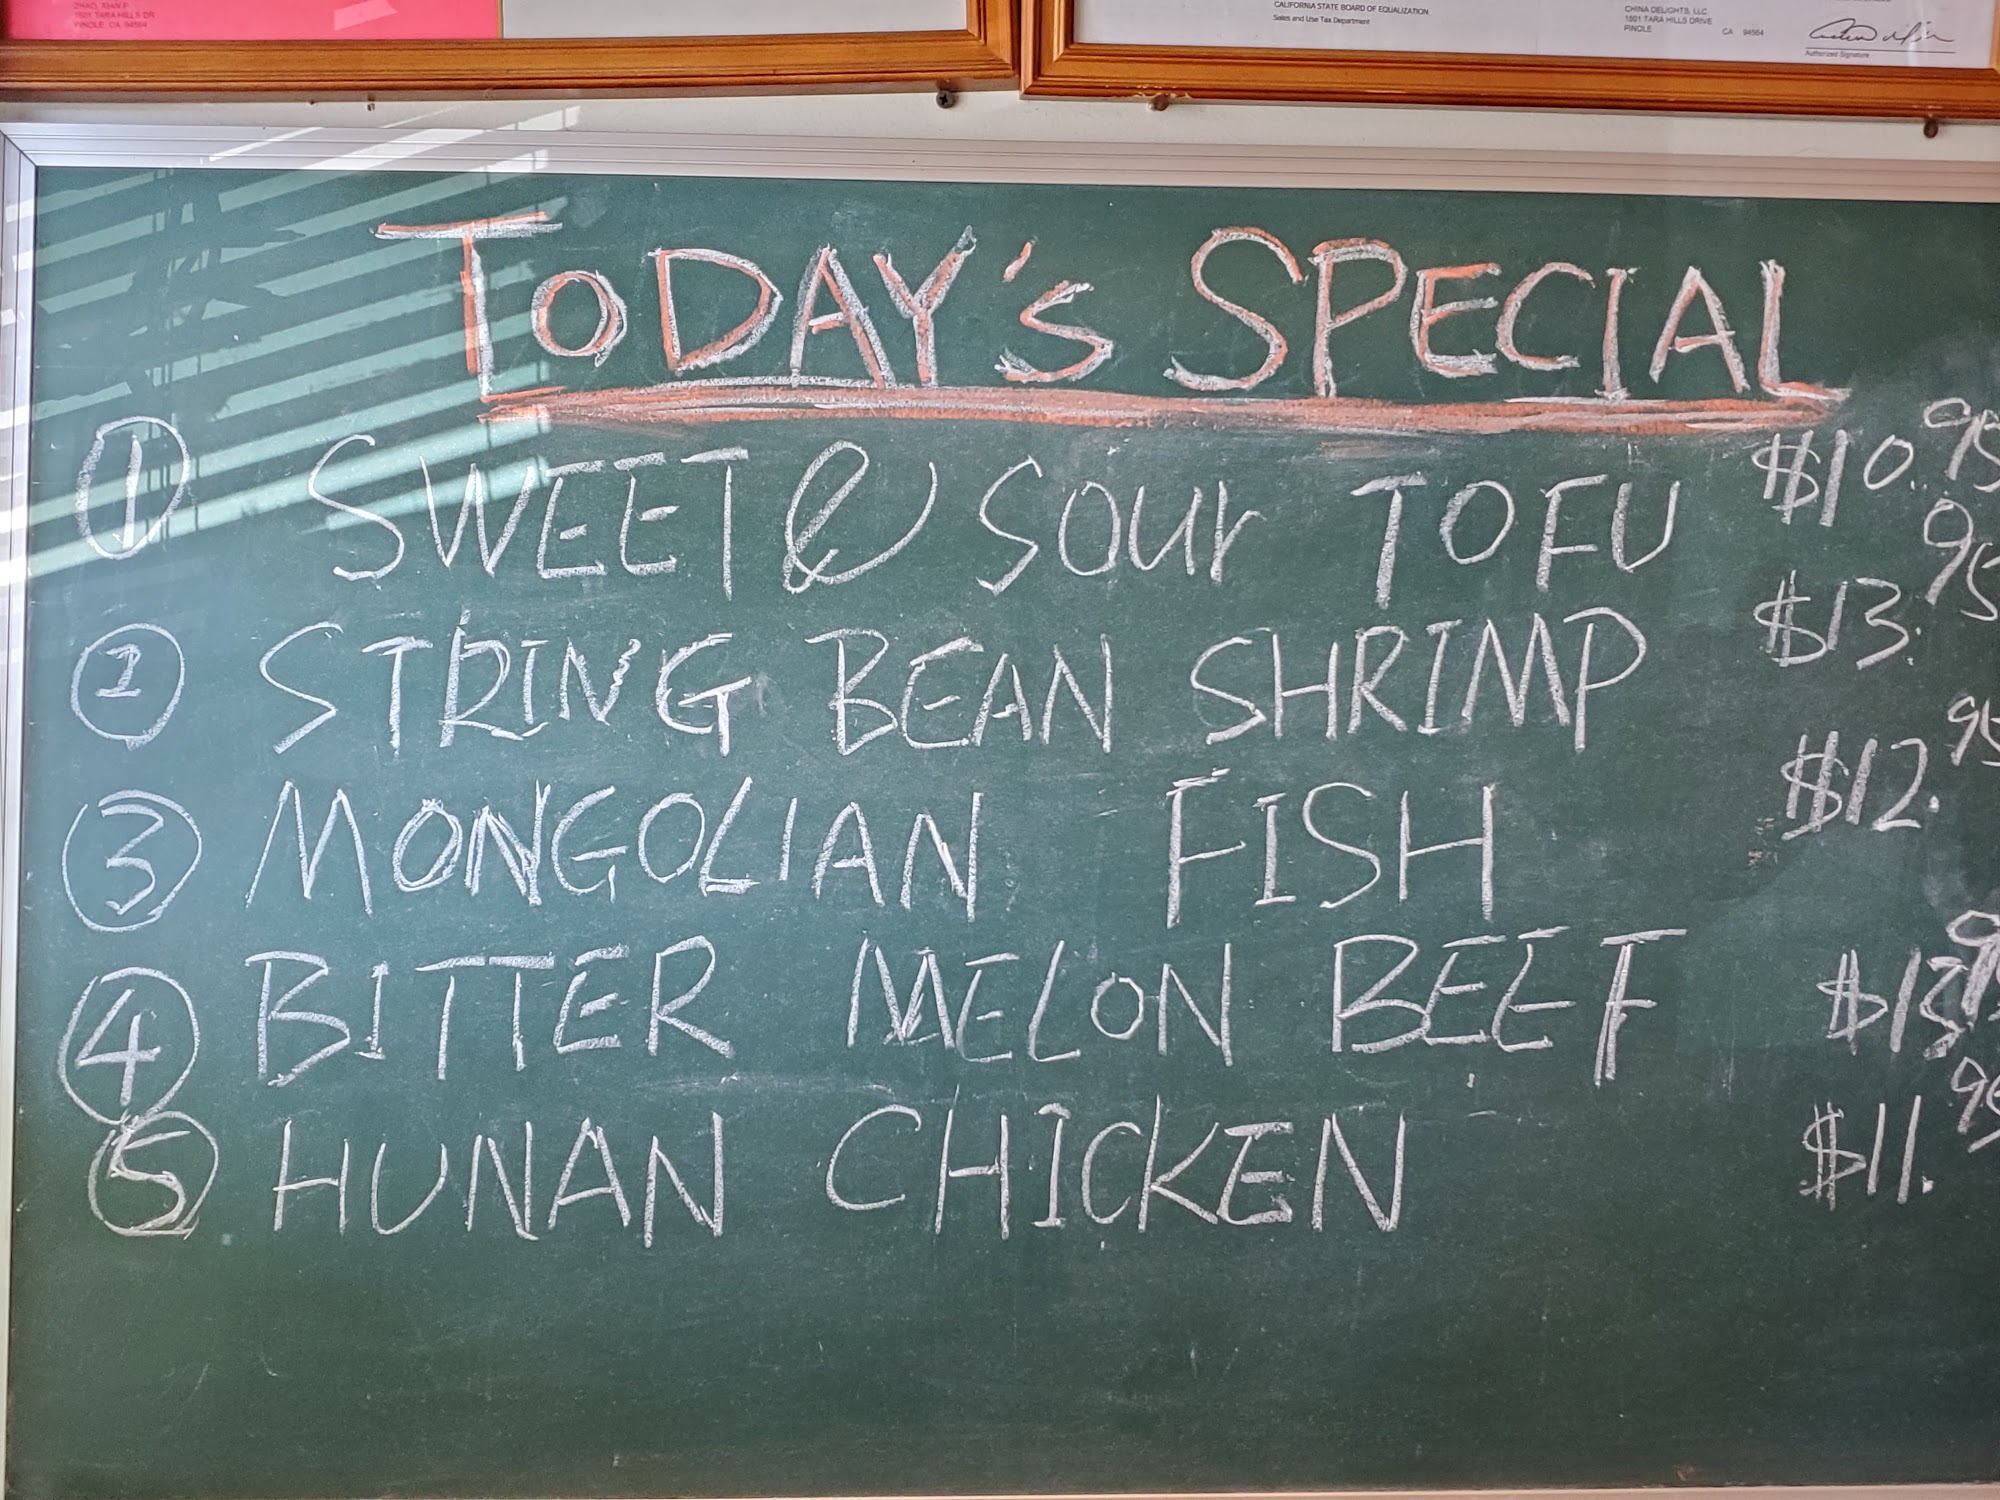 ZHAO, XIAN P
1501 TARA HILLS DR
PINOLE, CA 94564
CALIFORNIA STATE BOARD OF EQUALIZATION
Sales and Use Tax Department
CHINA DELIGHTS, LLC
1501 TARA HILLS DRIVE
PINOLE CA 94564
Authorized Signature
TODAY'S SPECIAL
① SWEET & SOUR TOFU $10.95
② STRING BEAN SHRIMP $13.95
③ MONGOLIAN FISH $12.95
④ BITTER MELON BEEF
⑤ HUNAN CHICKEN $11.95